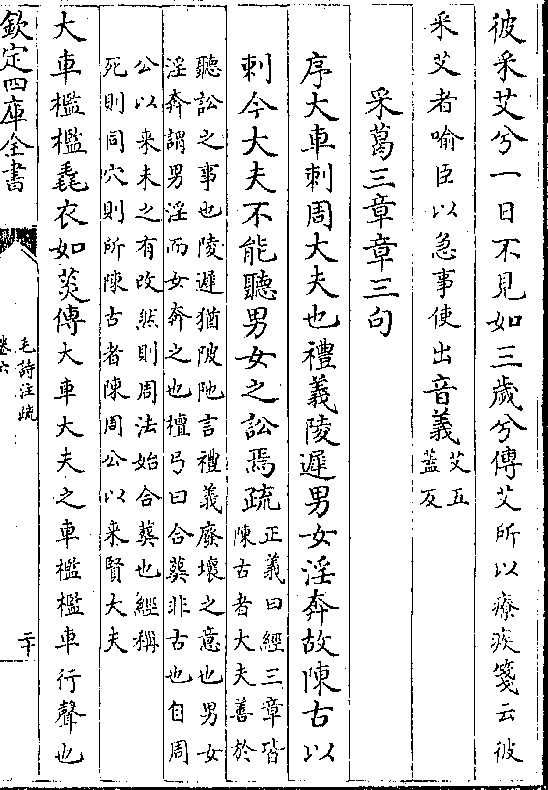 彼采艾兮一日不見如三歲兮傳艾所以療疾箋云彼
采艾者喻臣以急事使出音義艾五
蓋反
采葛三章章三句
序大車刺周大夫也禮義陵遲男女淫奔故陳古以
刺今大夫不能聽男女之訟焉疏正義曰經三章皆
陳古者大夫善於
聽訟之事也陵遲猶陂陁言禮義廢壞之意也男女
淫奔謂男淫而女奔之也檀弓曰合葬非古也自周
公以来未之有改然則周法始合葬也經稱
死則同穴則所陳古者陳周公以来賢大夫
大車檻檻毳衣如菼傳大車大夫之車檻檻車行聲也
欽定四庫全書
毛詩注疏
卷六
二十